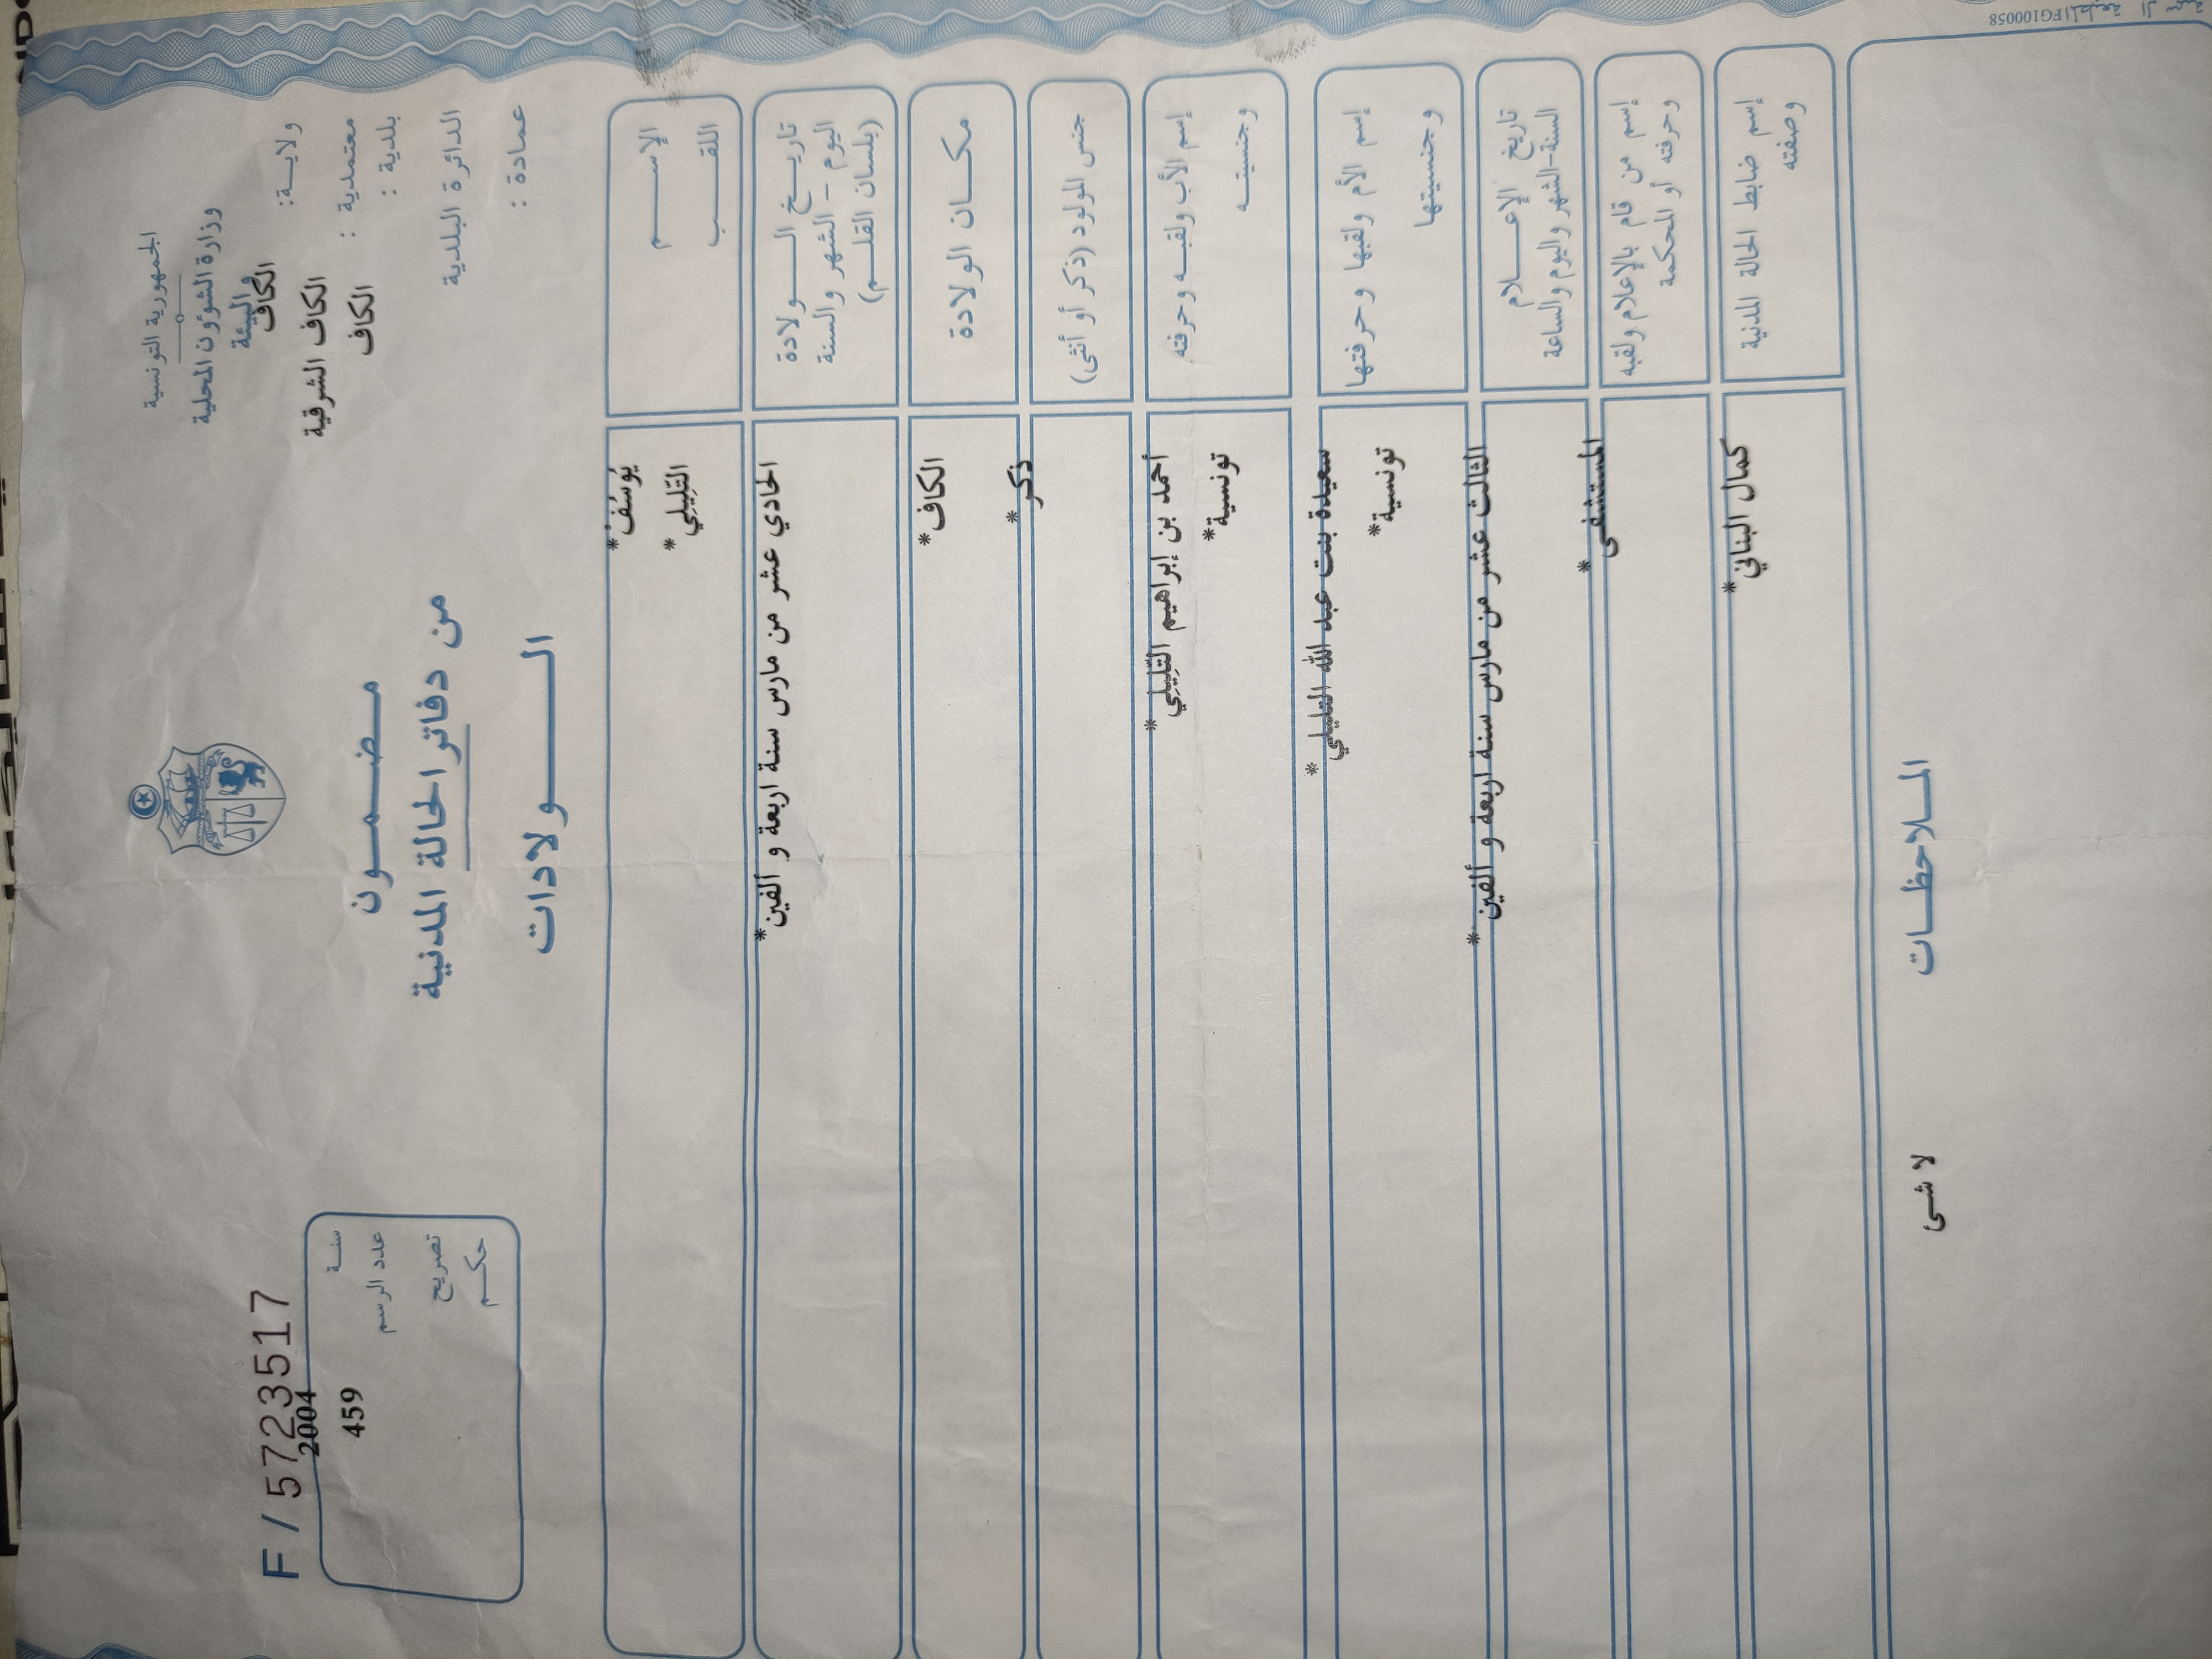 الجمهورية التونسية
وزارة الشؤون المحلية
والبيئة
ولايــة: الكاف
معتمدية : الكاف الشرقية
بلدية : الكاف
الدائرة البلدية
عمادة :
مـضـمــون
من دفاتر الحالة المدنية
الـــولادات
F / 5723517
سنــة 2004
عدد الرسم 459
تصريح
حكـم
الإســـم يُوسُفْ*
اللقــب التّلِيلِي*
تاريــخ الــــولادة الحادي عشر من مارس سنة اربعة و ألفين*
اليوم - الشهر والسنة
(بلسان القلـم)
مكــان الولادة الكاف*
جنس المولود (ذكر أو أنثى) ذكر*
إسم الأب ولقبـه وحرفته أحمد بن إبراهيم التّلِيلِي*
وجنسيتــه تونسية*
إسم الأم ولقبها وحرفتها سعيدة بنت عبد الله التليلي*
وجنسيتها تونسية*
تاريخ الإعـــلام الثالث عشر من مارس سنة اربعة و ألفين*
السنة-الشهر واليوم والساعة
إسم من قام بالإعلام ولقبه المستشفى*
وحرفته أو المحكمة
إسم ضابط الحالة المدنية كمال البناني*
وصفته
المـلاحظـات
لا شى
FG100058